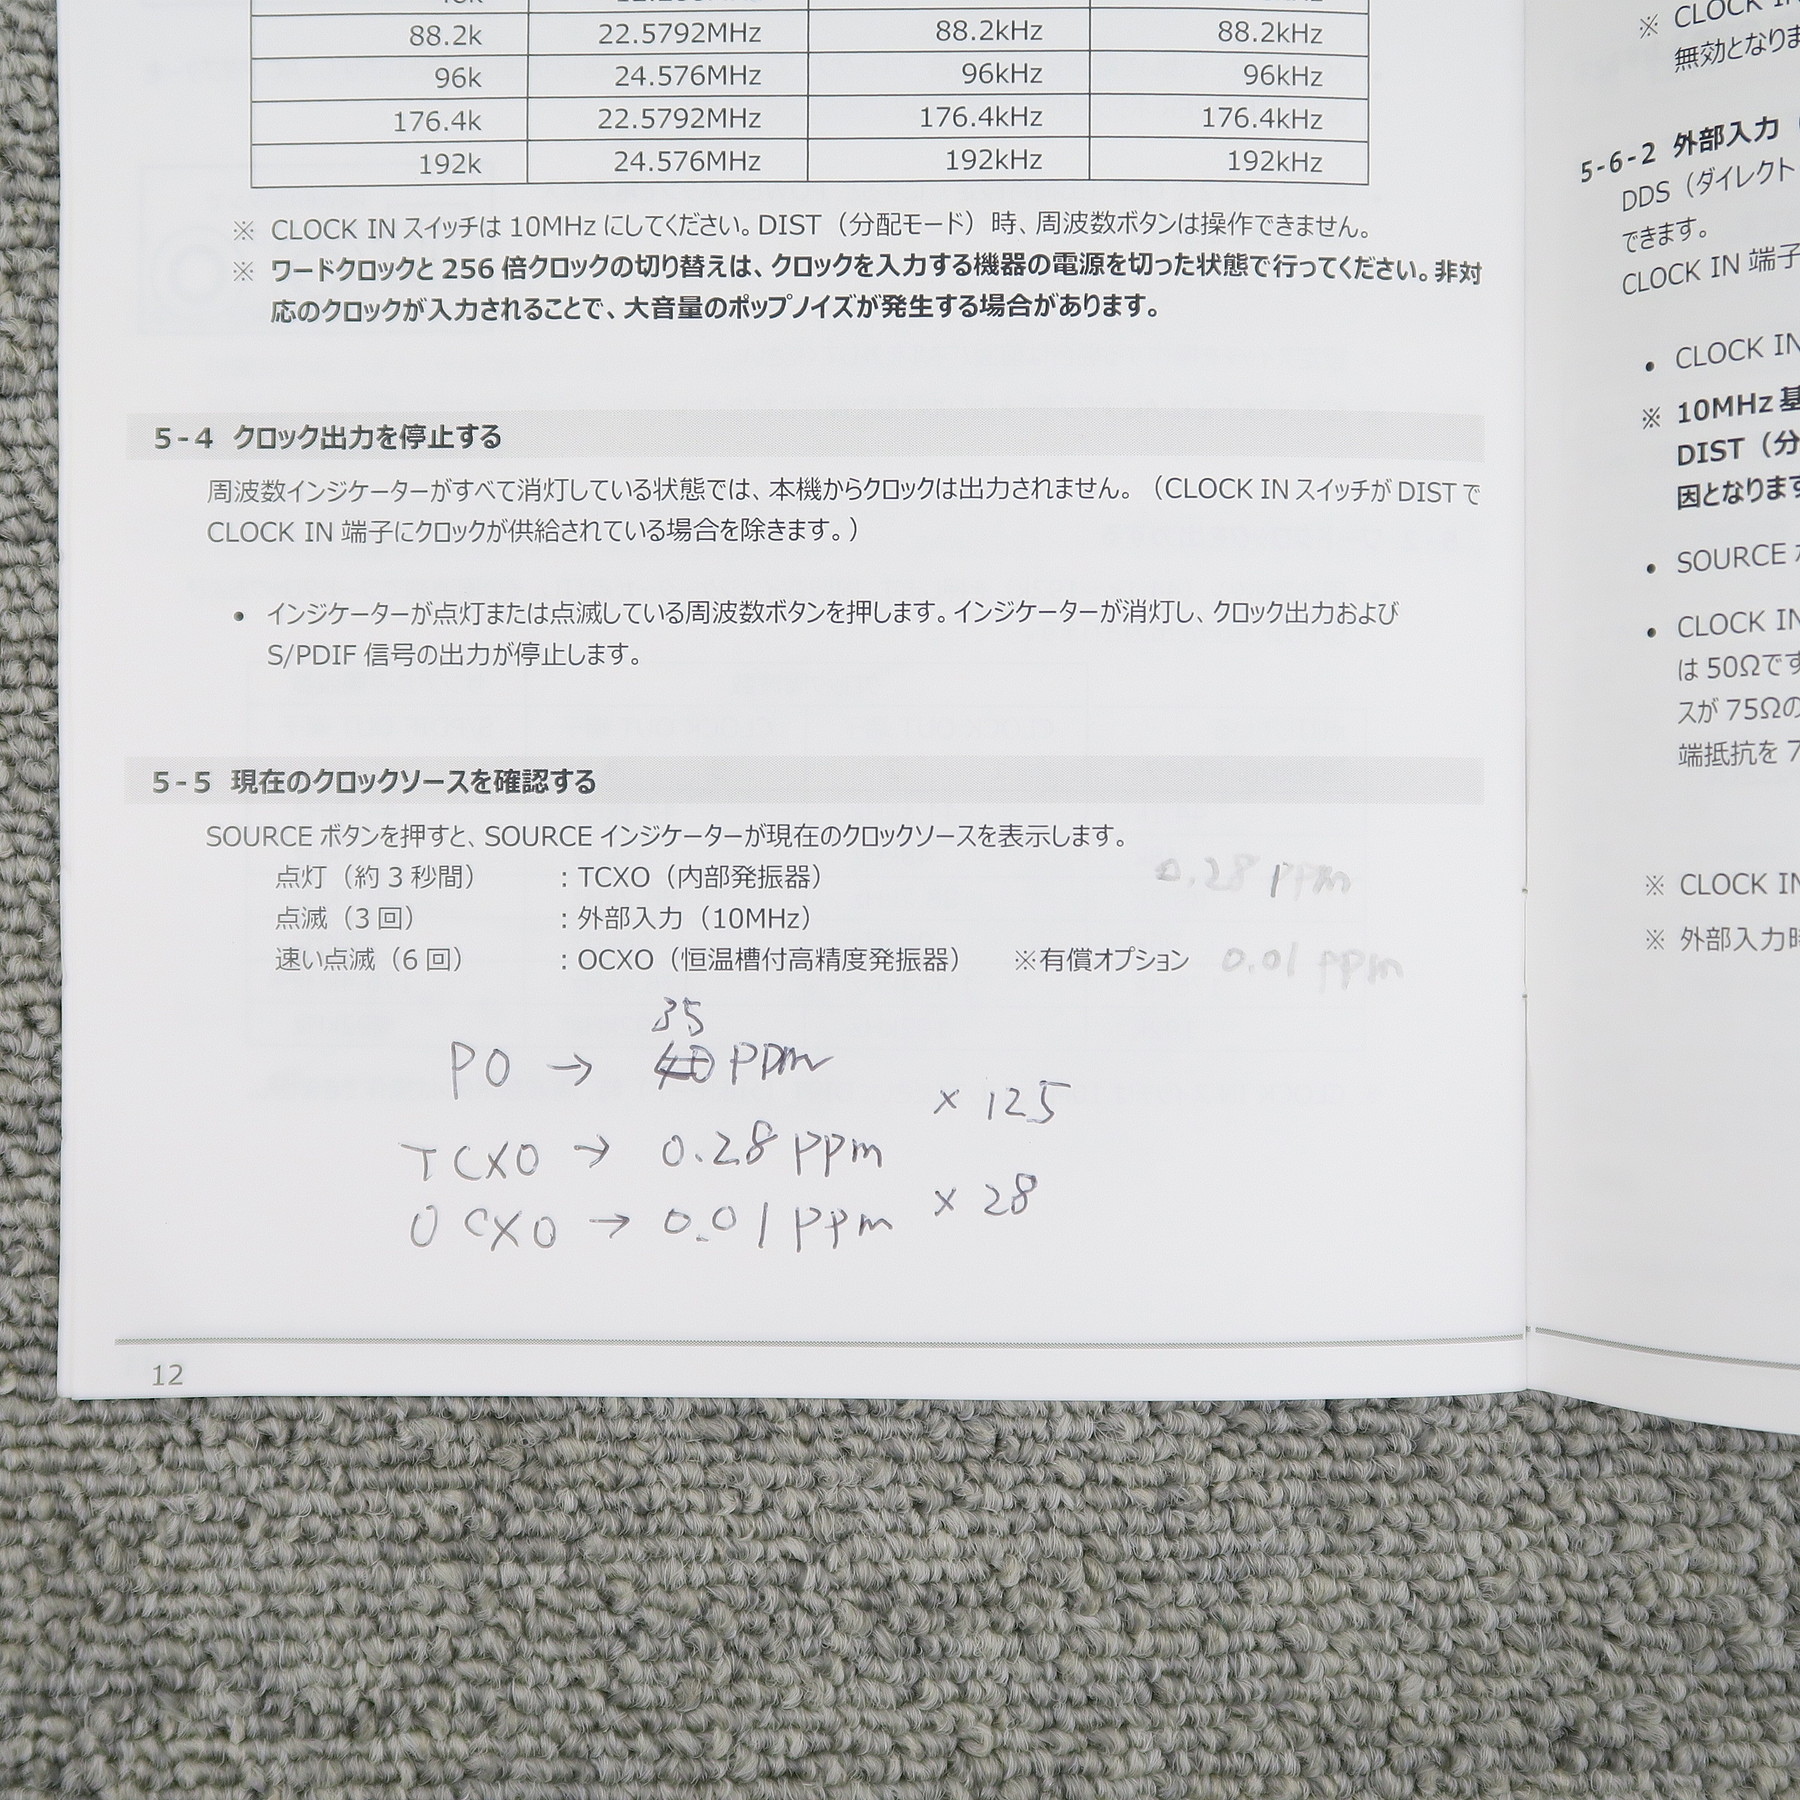 88.2k 22.5792MHz 88.2kHz 88.2kHz
96k 24.576MHz 96kHz 96kHz
176.4k 22.5792MHz 176.4kHz 176.4kHz
192k 24.576MHz 192kHz 192kHz
※ CLOCK IN スイッチは 10MHz にしてください。DIST（分配モード）時、周波数ボタンは操作できません。
※ ワードクロックと 256 倍クロックの切り替えは、クロックを入力する機器の電源を切った状態で行ってください。非対
応のクロックが入力されることで、大音量のポップノイズが発生する場合があります。
5-4 クロック出力を停止する
周波数インジケーターがすべて消灯している状態では、本機からクロックは出力されません。（CLOCK IN スイッチが DIST で
CLOCK IN 端子にクロックが供給されている場合を除きます。）
• インジケーターが点灯または点滅している周波数ボタンを押します。インジケーターが消灯し、クロック出力および
S/PDIF 信号の出力が停止します。
5-5 現在のクロックソースを確認する
SOURCE ボタンを押すと、SOURCE インジケーターが現在のクロックソースを表示します。
点灯（約 3 秒間） : TCXO（内部発振器） 0.28 ppm
点滅（3 回） : 外部入力（10MHz）
速い点滅（6 回） : OCXO（恒温槽付高精度発振器） ※有償オプション 0.01 ppm
35
PO → ppm
× 125
TCXO → 0.28 ppm
× 28
OCXO → 0.01 ppm
12
※ CLOCK IN
無効となりま
5-6-2 外部入力
DDS（ダイレクト
できます。
CLOCK IN 端子
• CLOCK IN
※ 10MHz 基
DIST（分
因となります
• SOURCE
• CLOCK IN
は 50Ωです
スが 75Ωの
端抵抗を 7
※ CLOCK IN
※ 外部入力時